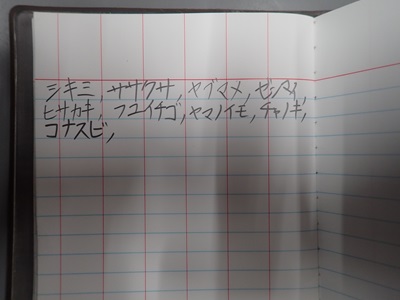 シキミ, ササクサ, ヤブマメ, ゼンマイ,
ヒサカキ, フユイチゴ, ヤマノイモ, チャノキ,
コナスビ,